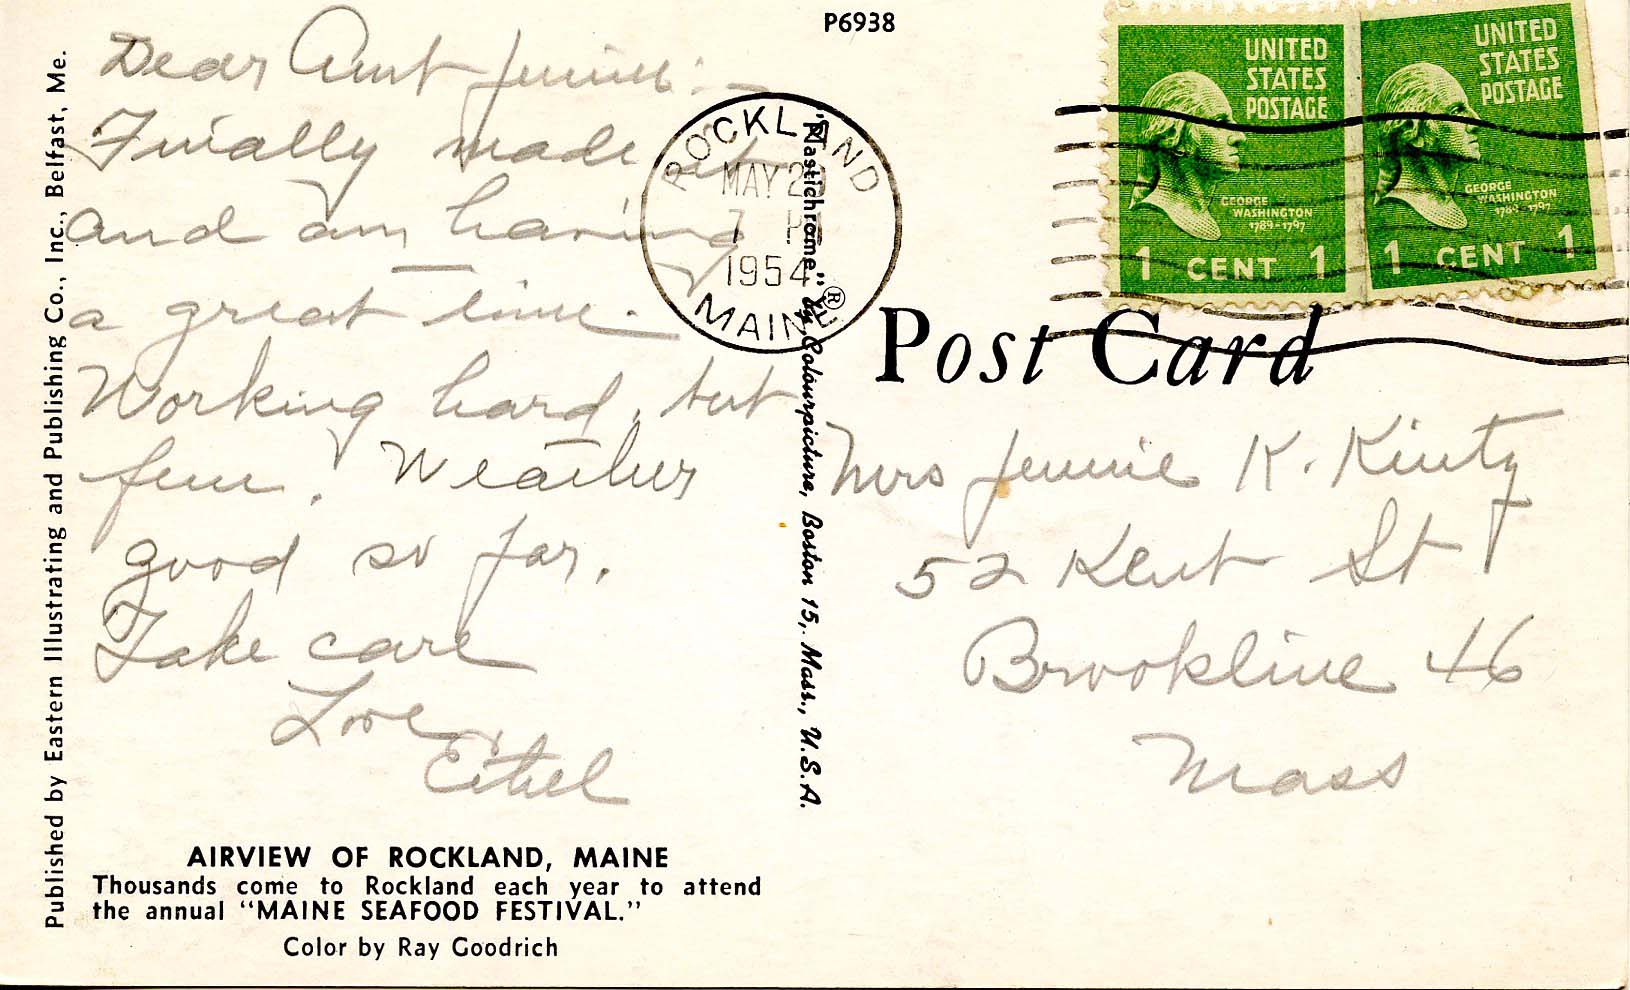 P6938
Dear Aunt Jennie:-
Finally made it
and am having
a great time.
Working hard, but
fun. Weather
good so far.
Take care
Love,
Ethel
AIRVIEW OF ROCKLAND, MAINE
Thousands come to Rockland each year to attend
the annual “MAINE SEAFOOD FESTIVAL.”
Color by Ray Goodrich
Published by Eastern Illustrating and Publishing Co., Inc., Belfast, Me.
"Plastichrome" ® by Colourpicture, Boston 15, Mass., U.S.A.
ROCKLAND
MAY 2
7 P
1954
MAINE
UNITED
STATES
POSTAGE
GEORGE
WASHINGTON
1789-1797
1 CENT 1
UNITED
STATES
POSTAGE
GEORGE
WASHINGTON
1789-1797
1 CENT 1
Post Card
Mrs Jennie K. Kinty
52 Kent St
Brookline 46
Mass